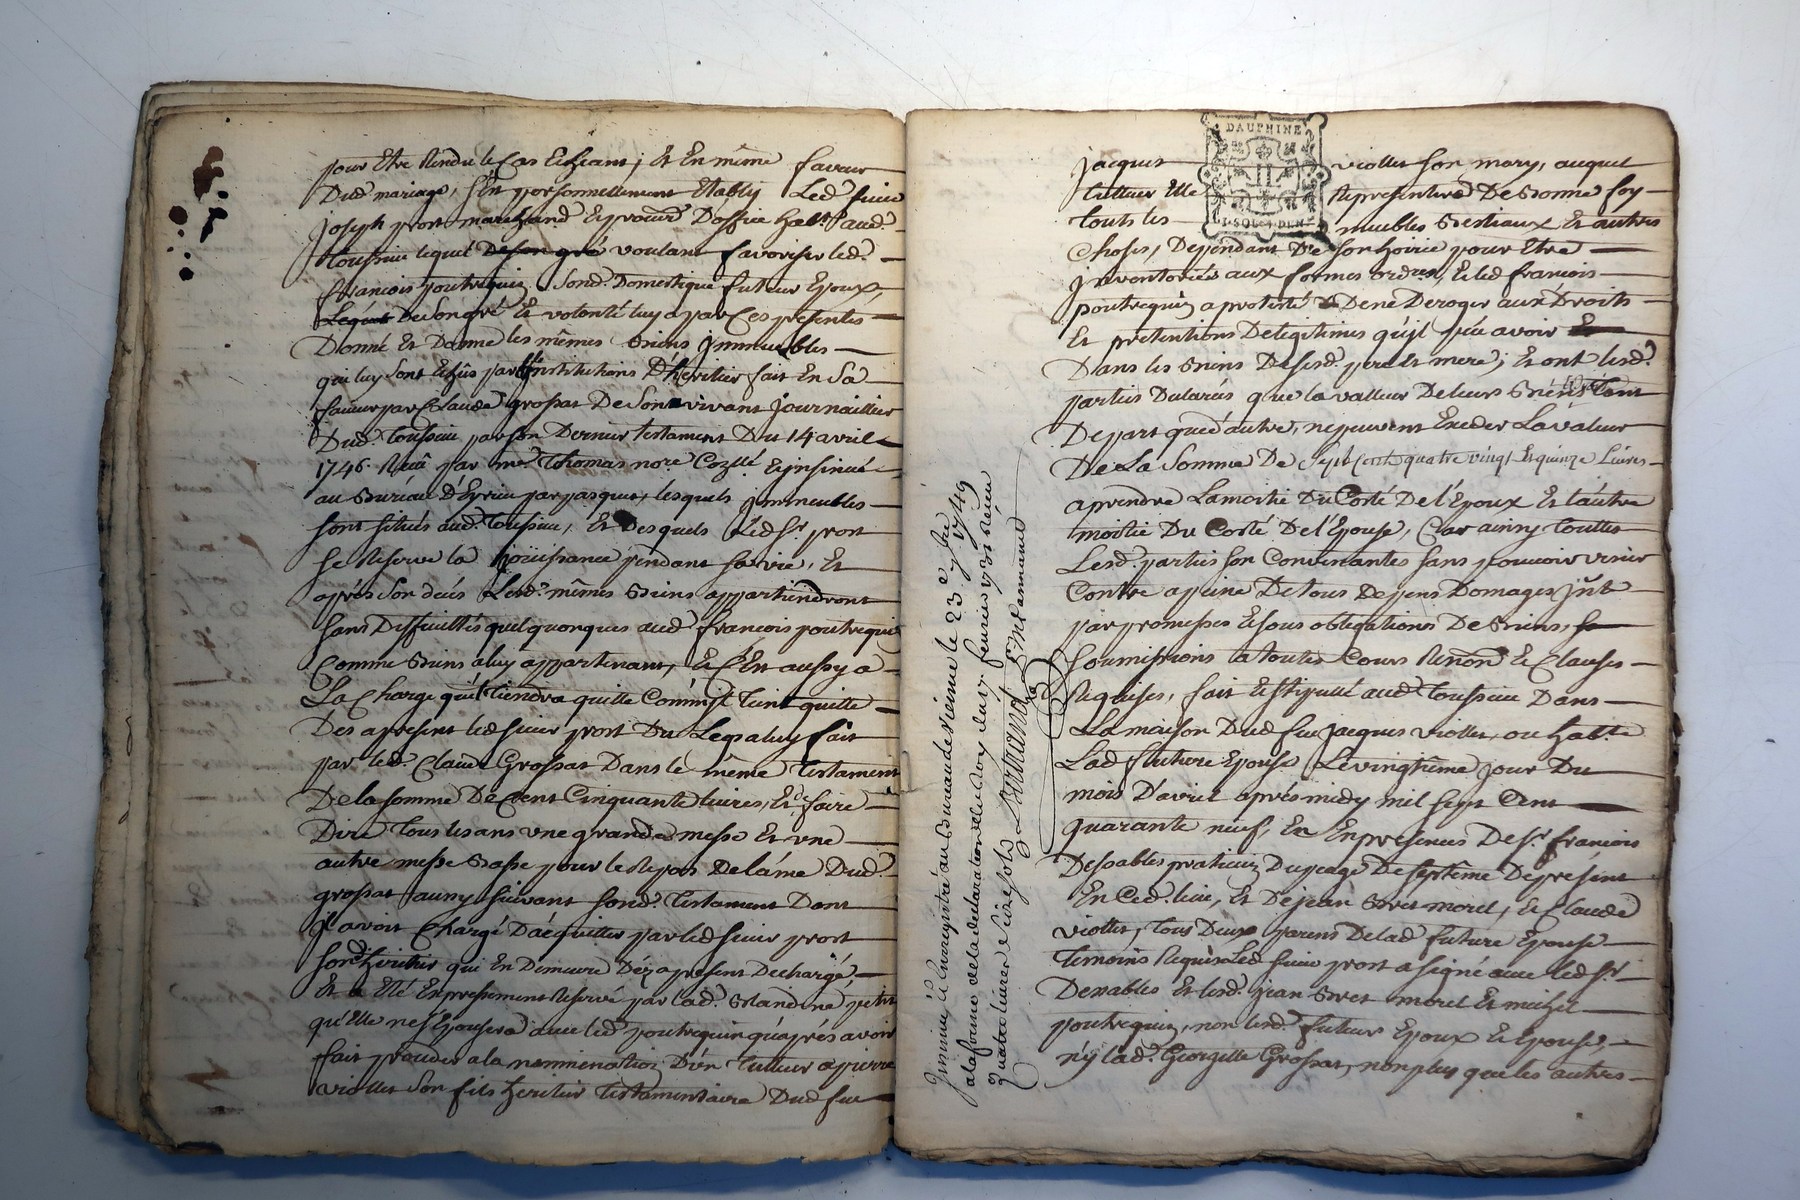 pour Etre Rendu le Cas Echeant; Et En même faveur
Dud. mariage, s'En personnellement Etably Led. sieur
Joseph pront marchand Et procur. D'office habt. aud.
Toussieu lequel De son gré voulant favoriser led.
francois poutrequin Sond. Domestique futeur Epoux,
Lequel Du Son gré Et volonté luy a par Ces presentes
Donné Et Donne les mêmes Biens jmmeubles
qui luy sont Echûs par l'institutions D'heritier fait En Sa
faveur par Claude grossat De Son vivant journaillier
Dud. Toussieu par son Dernier testament Du 14 avril
1746. Reçû par me. Thomas nore. Et jnsinué
au Bureau D'heyrieu par pasquet, lesquels jmmeubles
sont situés aud. Toussieu, Et Desquels Led. sr. pront
se Reserve la Jouissance pendant sa vie, Et
après Son décés Lesd. mêmes Biens appartiendront
sans Difficultés quelquonques aud. francois poutrequin
Comme Biens a luy appartenant, Et C'Est aussy a
La Charge qu'il tiendra quitte Comm'il tient quitte
Des apresent led sieur pront Du Legs a luy fait
par led. Claude Grossat Dans le même Testament
De la somme De Cent Cinquante livres, Et De faire
Dire Tous les ans une grande messe Et une
autre messe Basse pour le Repos De l'áme Dud.
grossat sauny suivant sond. Testament Dont
jl avoit Chargé D'acquitter par led sieur pront
sond heritier qui En Demeure Déz apresent Dechargé
Et a Eté Expressement Reservé par lad. Blandine petit
qu'Elle ne s'Epousera avec led. poutrequin qu'après avoir
fait proceder a la nommination D'un Tutteur a pierre
viollet Son fils heritier Testamentaire Dud feu
jacques viollet son mary, auquel
tutteur Elle Representera De Bonne foy
touts les meubles Bestiaux Et autres
Choses, Dependant De son hoirie pour Etre
jnventoriés aux formes ordres, Et led francois
poutrequin a protesté De ne Deroger aux Droits
Et pretentions De legitimes qu'il peu avoir
Dans les Biens De sesd. pere Et mere; Et ont lesd.
parties Declarés que la valleur De leurs Biens Tant
De part que d'autre, ne peuvent Exeder La valeur
De La Somme De Sept Cents quatre vingt Et quinze Livres
a prendre La moitié Du Costé De l'Epoux Et l'autre
moitié Du Costé De l'Epouse, Car ainsy touttes
Lesd. parties son Convenantes sans pouvoir venir
Contre a peine De tous Depens Domages jnt.
par promesses Et sous obligations De Biens,
soumissions a toutes Cours Renon. Et Clauses
Requises, fait Et stipullé aud Toussieu Dans
La maison Dud feu jacques viollet, ou habt.
Lad future Epouse Le vingtième jour Du
mois D'avril après midy mil sept Cent
quarante neuf, En Enpresences De sr. francois
Dessables praticien Du peage De septeme De present
En Ced. lieu, Et De jean Bret morel, Et Claude
viollet, Tous Deux parens De lad future Epouse
Temoins Requis Led sieur pront a signé avec led. sr.
Dessables Et lesd. jean Bret morel Et michel
poutrequin, non lesd. futeur Epoux Et Epouse,
n'y lad. Georgette Grossat, non plus que les autres
DAUPHINE
Jnsinué Et Enregistré au Bureau de vienne le 23e. 7bre 1749
a la forme de la declaration du Roy du 17 fevrier 1731 Receu
Quatre livres Six sols